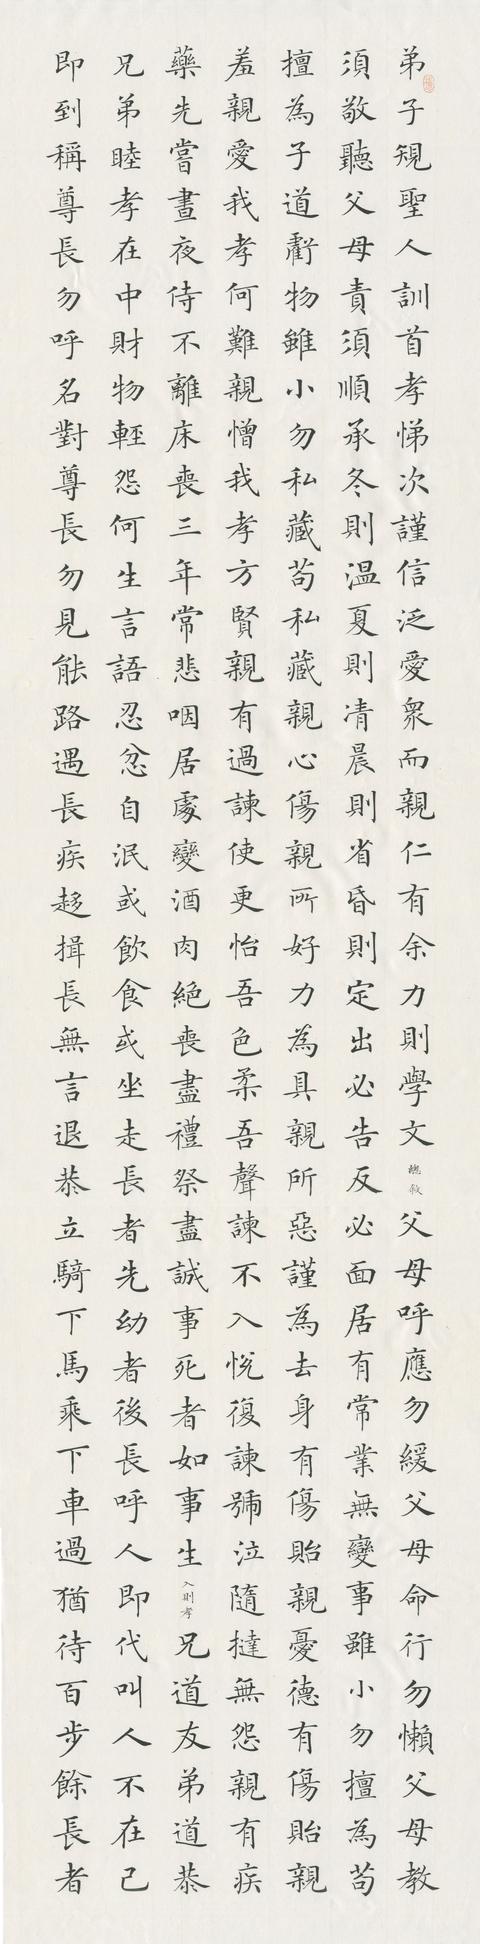 弟子規聖人訓首孝悌次謹信泛愛衆而親仁有余力則學文總敘父母呼應勿緩父母命行勿懶父母教
須敬聽父母責須順承冬則温夏則凊晨則省昏則定出必告反必面居有常業無變事雖小勿擅為苟
擅為子道虧物雖小勿私藏苟私藏親心傷親所好力為具親所惡謹為去身有傷貽親憂德有傷貽親
羞親愛我孝何難親憎我孝方賢親有過諫使更怡吾色柔吾聲諫不入悅復諫號泣隨撻無怨親有疾
藥先嘗晝夜侍不離床喪三年常悲咽居處變酒肉絕喪盡禮祭盡誠事死者如事生入則孝兄道友弟道恭
兄弟睦孝在中財物輕怨何生言語忍忿自泯或飲食或坐走長者先幼者後長呼人即代叫人不在己
即到稱尊長勿呼名對尊長勿見能路遇長疾趍揖長無言退恭立騎下馬乘下車過猶待百步餘長者